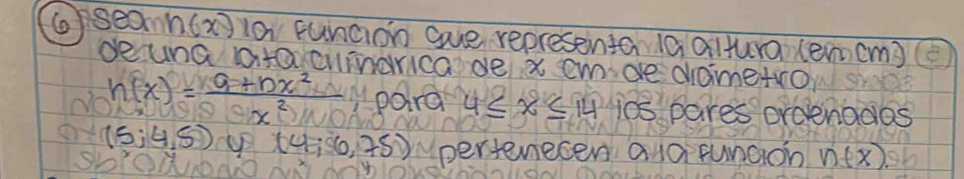 ⑥ sea h(x) la función que representa la altura (en cm)
de una lata cilíndrica de x cm de diámetro,
h(x) = a+bx² / x² , para 4 ≤ x ≤ 14 los pares ordenados
(5;4,5) y (4;6,75) pertenecen a la función h(x).